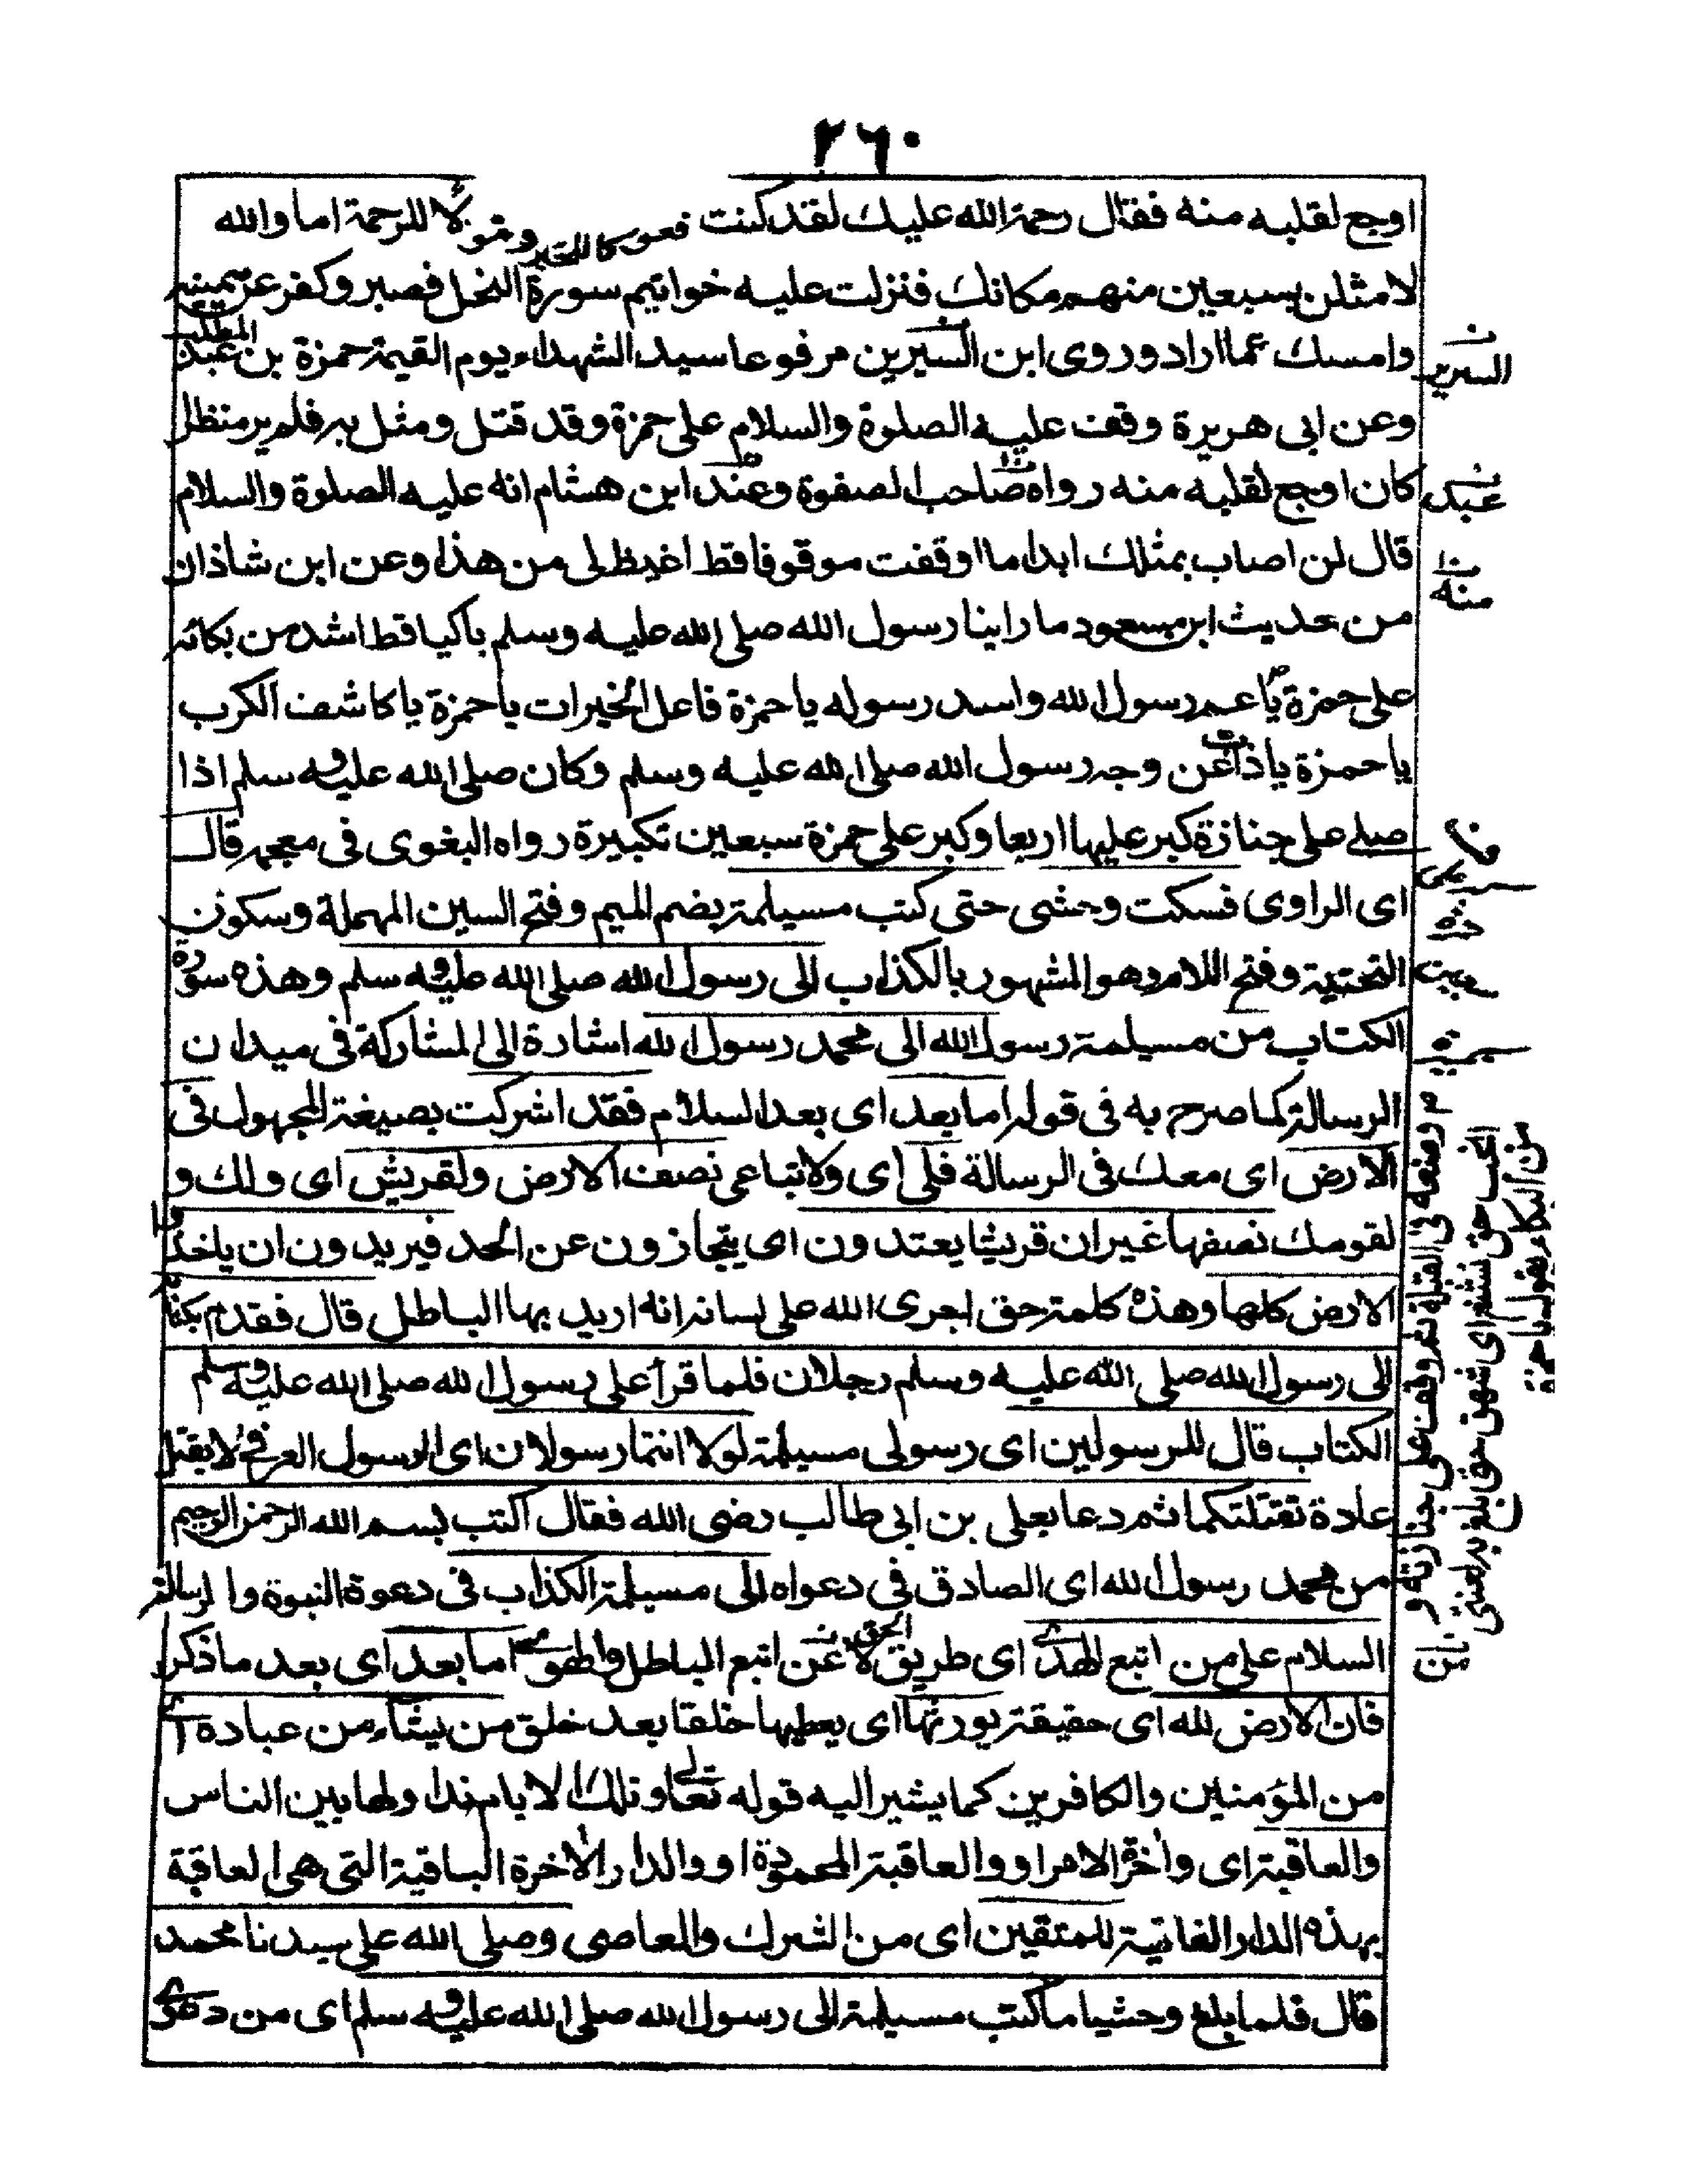 ٢٦٠
اوجع لقلبه منه فقال رحمة الله عليك لقد كنت فعولا للخير وصولا للرحمة اما والله
لامثلن بسبعين منهم مكانك فنزلت عليه خواتيم سورة النحل فصبر وكفر عن يمينه
وامسك عما اراد وروى ابن السيرين مرفوعا سيد الشهداء يوم القيمة حمزة بن عبد المطلب
وعن ابى هريرة وقف عليه الصلوة والسلام على حمزة وقد قتل ومثل به فلم ير منظرا
كان اوجع لقلبه منه رواه صاحب الصفوة وعند ابن هشام انه عليه الصلوة والسلام
قال لن اصاب بمثلك ابدا ما اوقفت موقوفا قط اغيظ لى من هذا وعن ابن شاذان
من حديث ابن مسعود ما راينا رسول الله صلى الله عليه وسلم باكيا قط اشد من بكائه
على حمزة يا عم رسول الله واسد رسوله يا حمزة فاعل الخيرات يا حمزة يا كاشف الكرب
يا حمزة يا ذاب عن وجه رسول الله صلى الله عليه وسلم وكان صلى الله عليه وسلم اذا
صلى على جنازة كبر عليها اربعا وكبر على حمزة سبعين تكبيرة رواه البغوى فى معجمه قال
اى الراوى فسكت وحشى حتى كتب مسيلمة بضم الميم وفتح السين المهملة وسكون
التحتية وفتح اللام وهو المشهور بالكذاب الى رسول الله صلى الله عليه وسلم وهذه سورة
الكتاب من مسيلمة رسول الله الى محمد رسول الله اشارة الى المشاركة فى ميدان
الرسالة كما صرح به فى قوله اما بعد اى بعد السلام فقد اشركت بصيغة المجهول فى
الارض اى معك فى الرسالة فلى اى ولاتباعى نصف الارض ولقريش اى ولك و
لقومك نصفها غير ان قريشا يعتدون اى يتجازون عن الحد فيريدون ان ياخذوا
الارض كلها وهذه كلمة حق اجرى الله على لسانه انه اريد بها الباطل قال فقدم بكتابه
الى رسول الله صلى الله عليه وسلم رجلان فلما قرأ على رسول الله صلى الله عليه وسلم
الكتاب قال للرسولين اى رسولى مسيلمة لولا انتما رسولان اى الرسول العرفى لا يقتل
عادة تقتلتكما ثم دعا بعلى بن ابى طالب رضى الله فقال اكتب بسم الله الرحمن الرحيم
من محمد رسول الله اى الصادق فى دعواه الى مسيلمة الكذاب فى دعوة النبوة والرسالة
السلام على من اتبع الهدى اى طريق الحق لا عن اتبع الباطل والهوى اما بعد اى بعد ما ذكر
فان الارض لله اى حقيقة يورثها اى يعطيها خلقا بعد خلق من يشاء من عباده اى
من المؤمنين والكافرين كما يشير اليه قوله تعالى وتلك الايام نداولها بين الناس
والعاقبة اى واخرة الامر او والعاقبة المحمودة او والدار الاخرة الباقية التى هى العاقبة
بهذه الدار الفانية للمتقين اى من الشرك والمعاصى وصلى الله على سيدنا محمد
قال فلما بلغ وحشيا ما كتب مسيلمة الى رسول الله صلى الله عليه وسلم اى من دعوى
السرير
عبد
منه
ووضعه فى القبلة ثم وقف على جنازته و
انتحب حتى نشغ اى شهق حتى بلغ به الغشى
من البكاء يقول يا حمزة